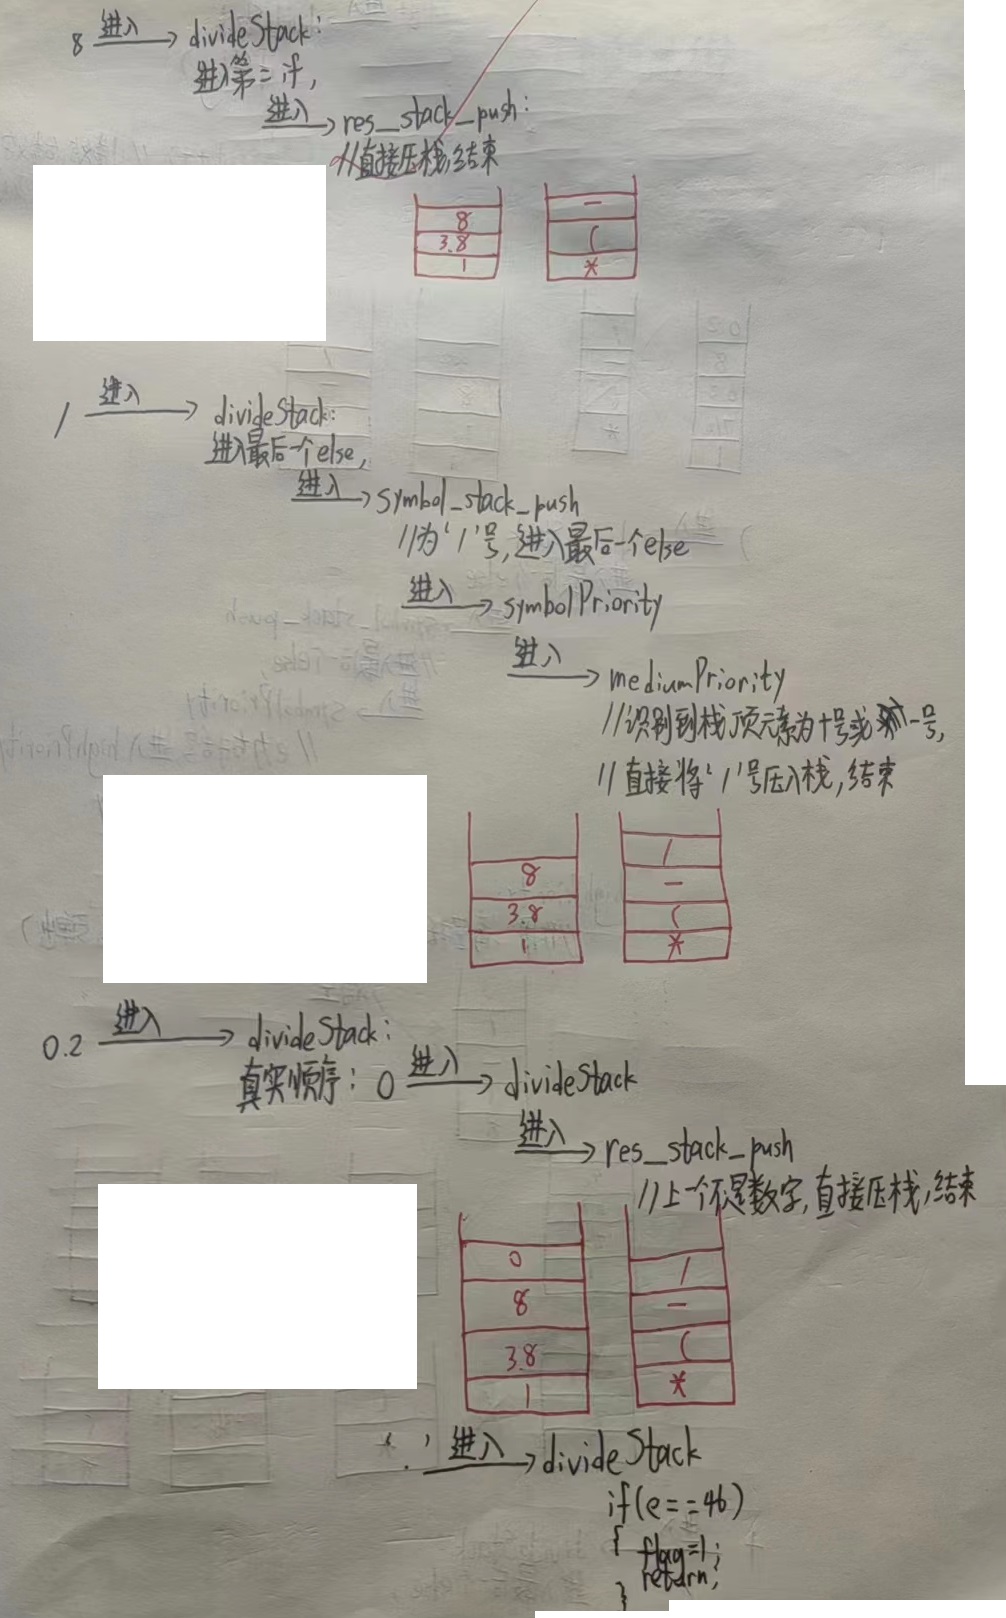 8 进入 → divideStack:
进入第二if,
进入 → res_stack_push:
//直接压栈,结束
8
3.8
1
-
(
*
/ 进入 → divideStack:
进入最后一个else,
进入 → symbol_stack_push
//为'/'号,进入最后一个else
进入 → symbolPriority
进入 → mediumPriority
//识别到栈顶元素为+号或-号,
//直接将'/'号压入栈,结束
8
3.8
1
/
-
(
*
0.2 进入 → divideStack:
真实顺序: 0 进入 → divideStack
进入 → res_stack_push
//上一个不是数字,直接压栈,结束
0
8
3.8
1
/
-
(
*
'.' 进入 → divideStack
if(e==46)
{ flag=1;
return;
}